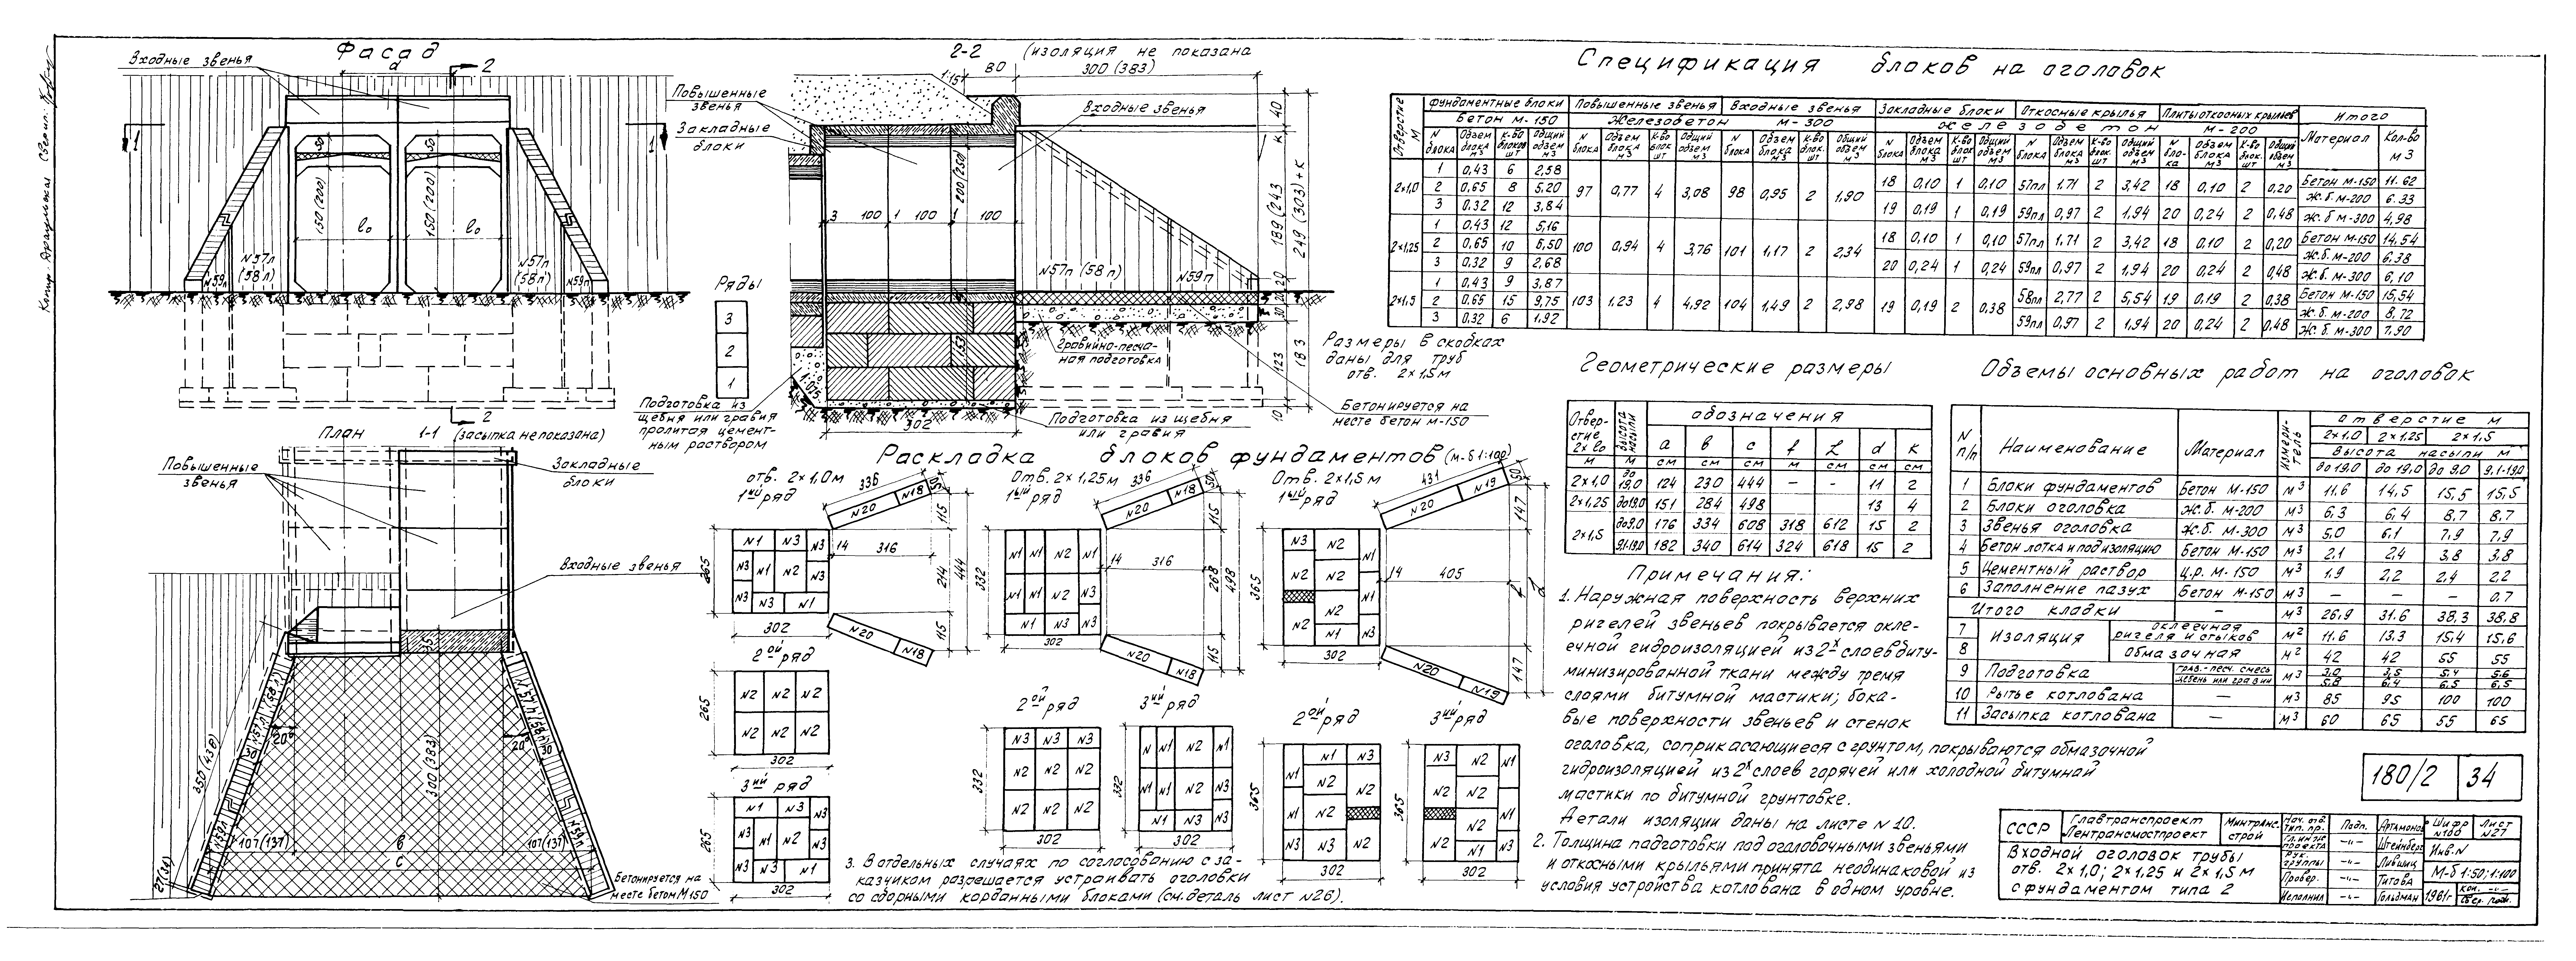 Фасад
Входные звенья
а
2
1
1
50
50
150 (200)
150 (200)
l₀
l₀
N57л
(58л)
N57п
(58п)
N59л
N59п
2
2-2 (изоляция не показана
1:1,5
80
300 (383)
Повышенные
звенья
Закладные
блоки
Входные звенья
3
100
1
100
1
100
200 (250)
153
40
К
189 (243)
249 (303)+К
20
30
123
183
10
N57п (58п)
N59п
Гравийно-песча-
ная подготовка
Ряды
3
2
1
302
Подготовка из
щебня или гравия
пролитая цемент-
ным раствором
Подготовка из щебня
или гравия
Бетонируется на
месте бетон М-150
Размеры в скобках
даны для труб
отв. 2×1,5 м
План 1-1 (засыпка не показана)
Повышенные
звенья
Закладные
блоки
Входные звенья
350 (438)
300 (383)
20°
20°
107(137)
в
107(137)
с
Бетонируется на
месте бетон М150
Раскладка блоков фундаментов (м-б 1:100)
отв. 2×1,0 м
1ый ряд
336
N20
N18
50
N1 N3 N3
N3 N1 N2 N3
N3 N3 N1
265
302
14
316
115
214
444
115
N20
N18
2ой ряд
N2 N2 N2
N2 N2 N2
265
302
3ий ряд
N1 N3 N3
N3 N1 N2 N3
N3 N3 N1
265
302
Отв. 2×1,25 м
1ый ряд
336
N20
N18
50
N1 N1 N2 N1
N1 N1 N2 N3
N1 N3 N3
332
302
14
316
115
268
498
115
N20
N18
2ой ряд
N3 N3 N3
N2 N2 N2
N2 N2 N2
332
302
3ий ряд
N N1 N2 N1
N1 N1 N2 N3
N1 N3 N3
332
302
Отв. 2×1,5 м
1ый ряд
431
N20
N19
50
N3 N2 N1
N2 N2
N2 N1
N2 N1 N3
365
302
14
405
147
147
N20
N19
2ой ряд
N1 N3
N1 N2 N2
N1 N2
N3 N3 N2
365
302
3ий ряд
N3 N2 N1
N2 N2
N2 N1
N2 N1 N3
365
302
3. В отдельных случаях по согласованию с за-
казчиком разрешается устраивать оголовки
со сборными кордонными блоками (см. деталь лист N26).
Спецификация блоков на оголовок
Отверстие м
Фундаментные блоки Повышенные звенья Входные звенья Закладные блоки Откосные крылья Плиты откосных крыльев Итого
Бетон М-150 Железобетон М-300 Железобетон М-200 Материал Кол-во м3
N блока Объем блока м3 К-во блоков шт Общий объем м3
2×1,0
1 0,43 6 2,58
2 0,65 8 5,20
3 0,32 12 3,84
97 0,77 4 3,08 98 0,95 2 1,90
18 0,10 1 0,10 57пл 1,71 2 3,42 18 0,10 2 0,20
19 0,19 1 0,19 59пл 0,97 2 1,94 20 0,24 2 0,48
Бетон М-150 11.62
Ж.б. М-200 6.33
Ж.б. М-300 4,98
2×1,25
1 0,43 12 5,16
2 0,65 10 6,50
3 0.32 9 2,68
100 0,94 4 3,76 101 1,17 2 2,34
18 0,10 1 0,10 57пл 1.71 2 3,42 18 0,10 2 0,20
20 0,24 1 0,24 59пл 0,97 2 1,94 20 0,24 2 0,48
Бетон М-150 14,54
Ж.б. М-200 6.38
Ж.б. М-300 6,10
2×1,5
1 0,43 9 3,87
2 0,65 15 9,75
3 0,32 6 1,92
103 1,23 4 4,92 104 1,49 2 2,98
19 0,19 2 0,38
58пл 2,77 2 5,54 19 0,19 2 0,38
59пл 0,97 2 1,94 20 0,24 2 0,48
Бетон М-150 15,54
Ж.б. М-200 8,72
Ж.б. М-300 7.90
Геометрические размеры
Отвер-
стие
2×l₀
Высота насыпи
обозначения
а в с f L d к
м м см см см м см см см
2×1,0 до 19,0 124 230 444 – – 11 2
2×1,25 до 19,0 151 284 498 13 4
2×1,5 до 9,0 176 334 608 318 612 15 2
9,1-19,0 182 340 614 324 618 15 2
Объемы основных работ на оголовок
N п/п Наименование Материал Измери-тель отверстие м
2×1,0 2×1,25 2×1,5
Высота насыпи м
до 19,0 до 19,0 до 9.0 9.1-19.0
1 Блоки фундаментов Бетон М-150 м3 11.6 14,5 15,5 15,5
2 Блоки оголовка Ж.б. М-200 м3 6.3 6,4 8.7 8.7
3 Звенья оголовка Ж.б. М-300 м3 5,0 6,1 7,9 7,9
4 Бетон лотка и под изоляцию Бетон М-150 м3 2,1 2,4 3.8 3.8
5 Цементный раствор Ц.р. М-150 м3 1.9 2,2 2,4 2,2
6 Заполнение пазух Бетон М-150 м3 – – – 0.7
Итого кладки – м3 26,9 31.6 38,3 38,8
7 Изоляция оклеечная ригеля и стыков м2 11.6 13.3 15,4 15,6
8 обмазочная м2 42 42 55 55
9 Подготовка грав.-песч. смесь м3 3,0 3,5 5.4 5.6
щебень или гравий 5.8 6,4 6,5 6,5
10 Рытье котлована – м3 85 95 100 100
11 Засыпка котлована – м3 60 65 55 65
Примечания:
1. Наружная поверхность верхних
ригелей звеньев покрывается окле-
ечной гидроизоляцией из 2х слоев биту-
минизированной ткани между тремя
слоями битумной мастики; боко-
вые поверхности звеньев и стенок
оголовка, соприкасающиеся с грунтом, покрываются обмазочной
гидроизоляцией из 2х слоев горячей или холодной битумной
мастики по битумной грунтовке.
Детали изоляции даны на листе N 10.
2. Толщина подготовки под оголовочными звеньями
и откосными крыльями принята неодинаковой из
условия устройства котлована в одном уровне.
180/2 34
СССР Главтранспроект
Лентрансмостпроект
Минтранс-
строй
Входной оголовок трубы
отв. 2×1,0; 2×1,25 и 2×1,5 м
с фундаментом типа 2
Нач. отд. тип. пр. Подп. Артамонов
Гл. инж. проекта –"– Штейнберг
Рук. группы –"– Лившиц
Провер. –"– Титова
Исполнил –"– Гольдман
Шифр N180 Лист N27
Инв. N
М-б 1:50; 1:100
1961г